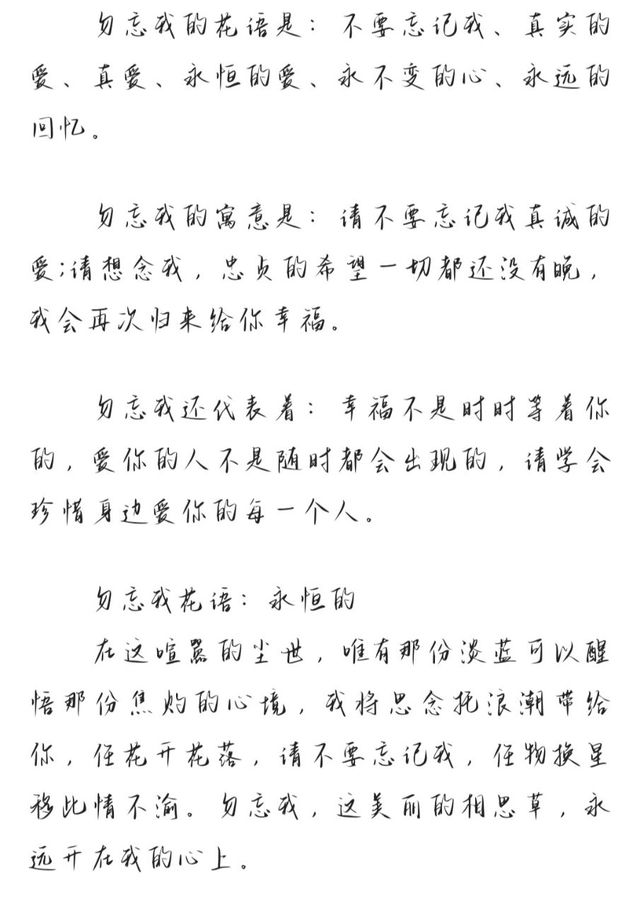 勿忘我的花语是：不要忘记我、真实的
爱、真爱、永恒的爱、永不变的心、永远的
回忆。
勿忘我的寓意是：请不要忘记我真诚的
爱;请想念我，忠贞的希望一切都还没有晚，
我会再次归来给你幸福。
勿忘我还代表着：幸福不是时时等着你
的，爱你的人不是随时都会出现的，请学会
珍惜身边爱你的每一个人。
勿忘我花语：永恒的
在这喧嚣的尘世，唯有那份淡蓝可以醒
悟那份焦灼的心境，我将思念托浪潮带给
你，任花开花落，请不要忘记我，任物换星
移此情不渝。勿忘我，这美丽的相思草，永
远开在我的心上。